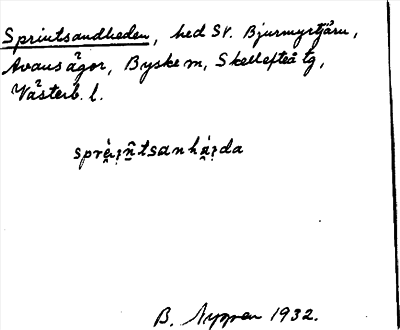 Sprintsandheden, hed SV. Bjurmyrtjärn,
Avans ägor, Byske sn, Skellefteå tg,
Västerb. l.
B. Nygren 1932.